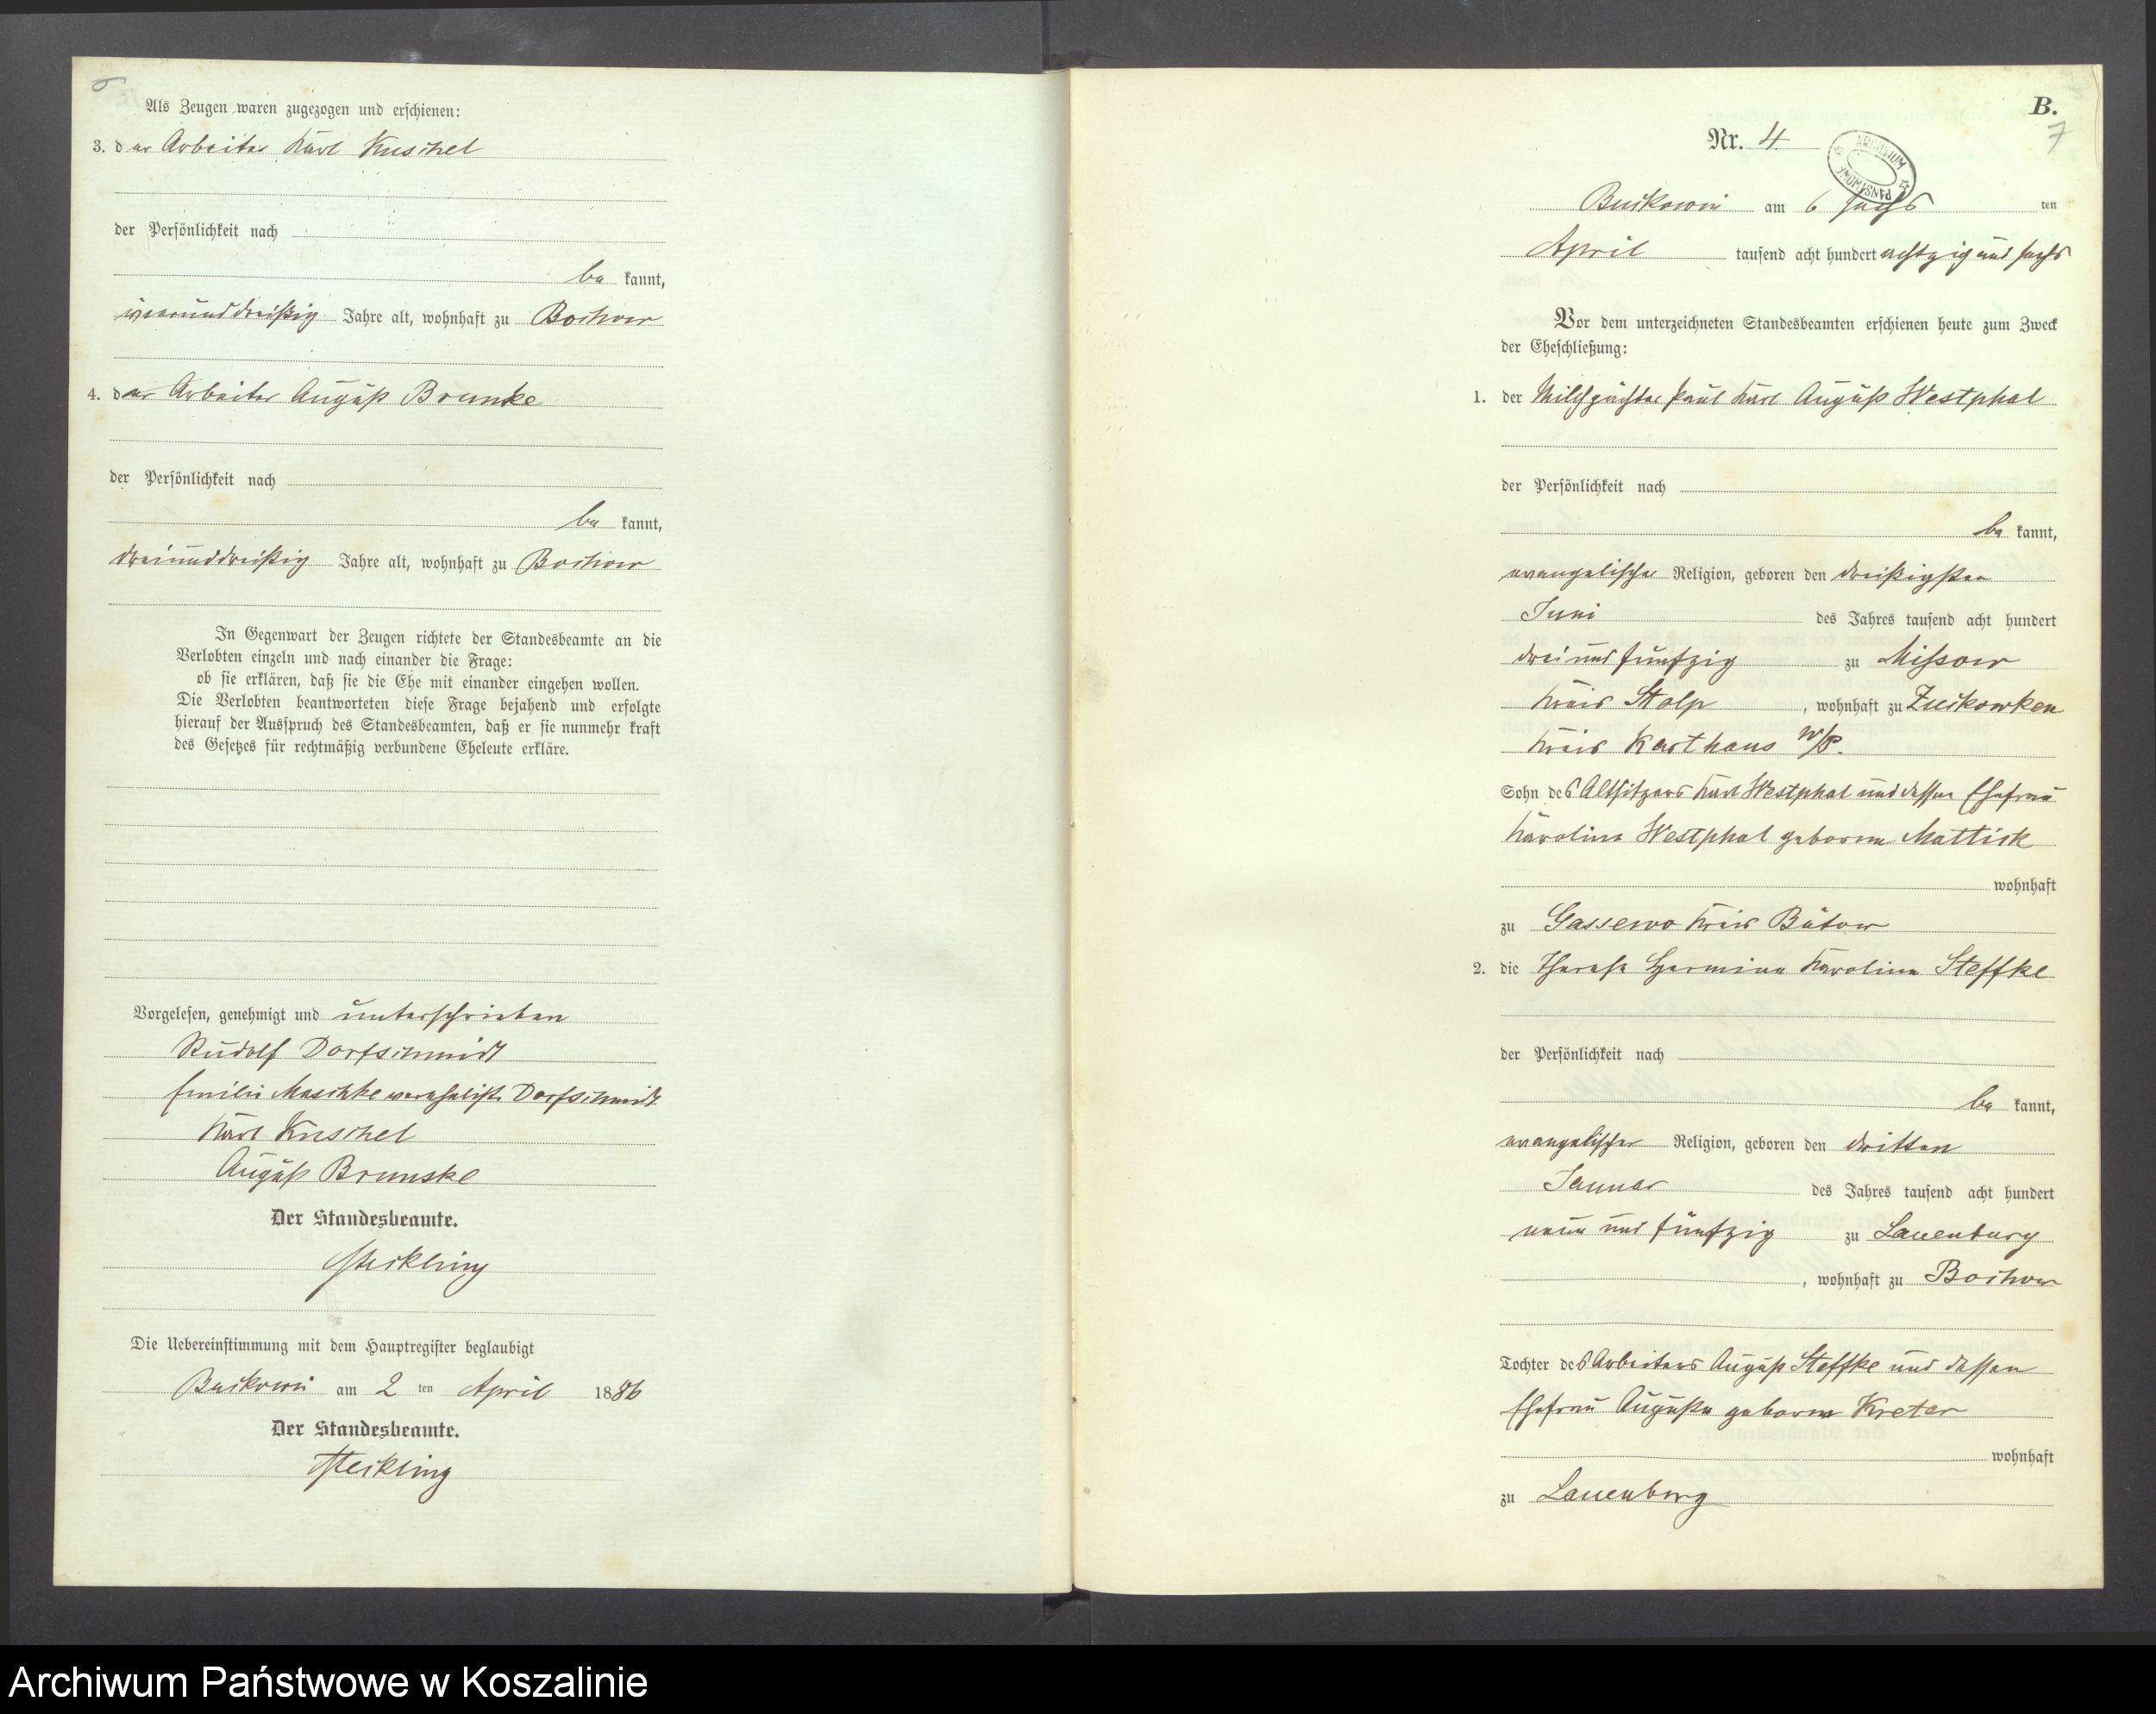 6
Als Zeugen waren zugezogen und erschienen:
3. der Arbeiter Karl Kuschel
der Persönlichkeit nach
be kannt,
vierunddreißig Jahre alt, wohnhaft zu Bochow
4. der Arbeiter August Brunke
der Persönlichkeit nach
be kannt,
dreiunddreißig Jahre alt, wohnhaft zu Bochow
In Gegenwart der Zeugen richtete der Standesbeamte an die
Verlobten einzeln und nach einander die Frage:
ob sie erklären, daß sie die Ehe mit einander eingehen wollen.
Die Verlobten beantworteten diese Frage bejahend und erfolgte
hierauf der Ausspruch des Standesbeamten, daß er sie nunmehr kraft
des Gesetzes für rechtmäßig verbundene Eheleute erkläre.
Vorgelesen, genehmigt und unterschrieben
Rudolf Dorfschmidt
Emilie Maschke verehelichte Dorfschmidt
Karl Kuschel
August Brunske
Der Standesbeamte.
Die Uebereinstimmung mit dem Hauptregister beglaubigt
am 2 ten April 1886
Der Standesbeamte.
B.
7
Nr. 4
ARCHIWUM PAŃSTWOWE
am 6 sechs ten
April tausend acht hundert achtzig und sechs
Vor dem unterzeichneten Standesbeamten erschienen heute zum Zweck
der Eheschließung:
1. der Milchpächter Paul Karl August Westphal
der Persönlichkeit nach
be kannt,
evangelischer Religion, geboren den dreißigsten
Juni des Jahres tausend acht hundert
drei und fünfzig zu Missow
Kreis Stolp, wohnhaft zu Zuckowken
Kreis Karthaus W/P.
Sohn des Altsitzers Karl Westphal und dessen Ehefrau
Karoline Westphal geborene Mattick
wohnhaft
zu Gassewo Kreis Bütow
2. die Therese Hermine Karoline Steffke
der Persönlichkeit nach
be kannt,
evangelischer Religion, geboren den dritten
Januar des Jahres tausend acht hundert
neun und fünfzig zu Lauenburg
, wohnhaft zu Bochow
Tochter des Arbeiters August Steffke und dessen
Ehefrau Auguste geborene Kreter
wohnhaft
zu Lauenburg
Archiwum Państwowe w Koszalinie